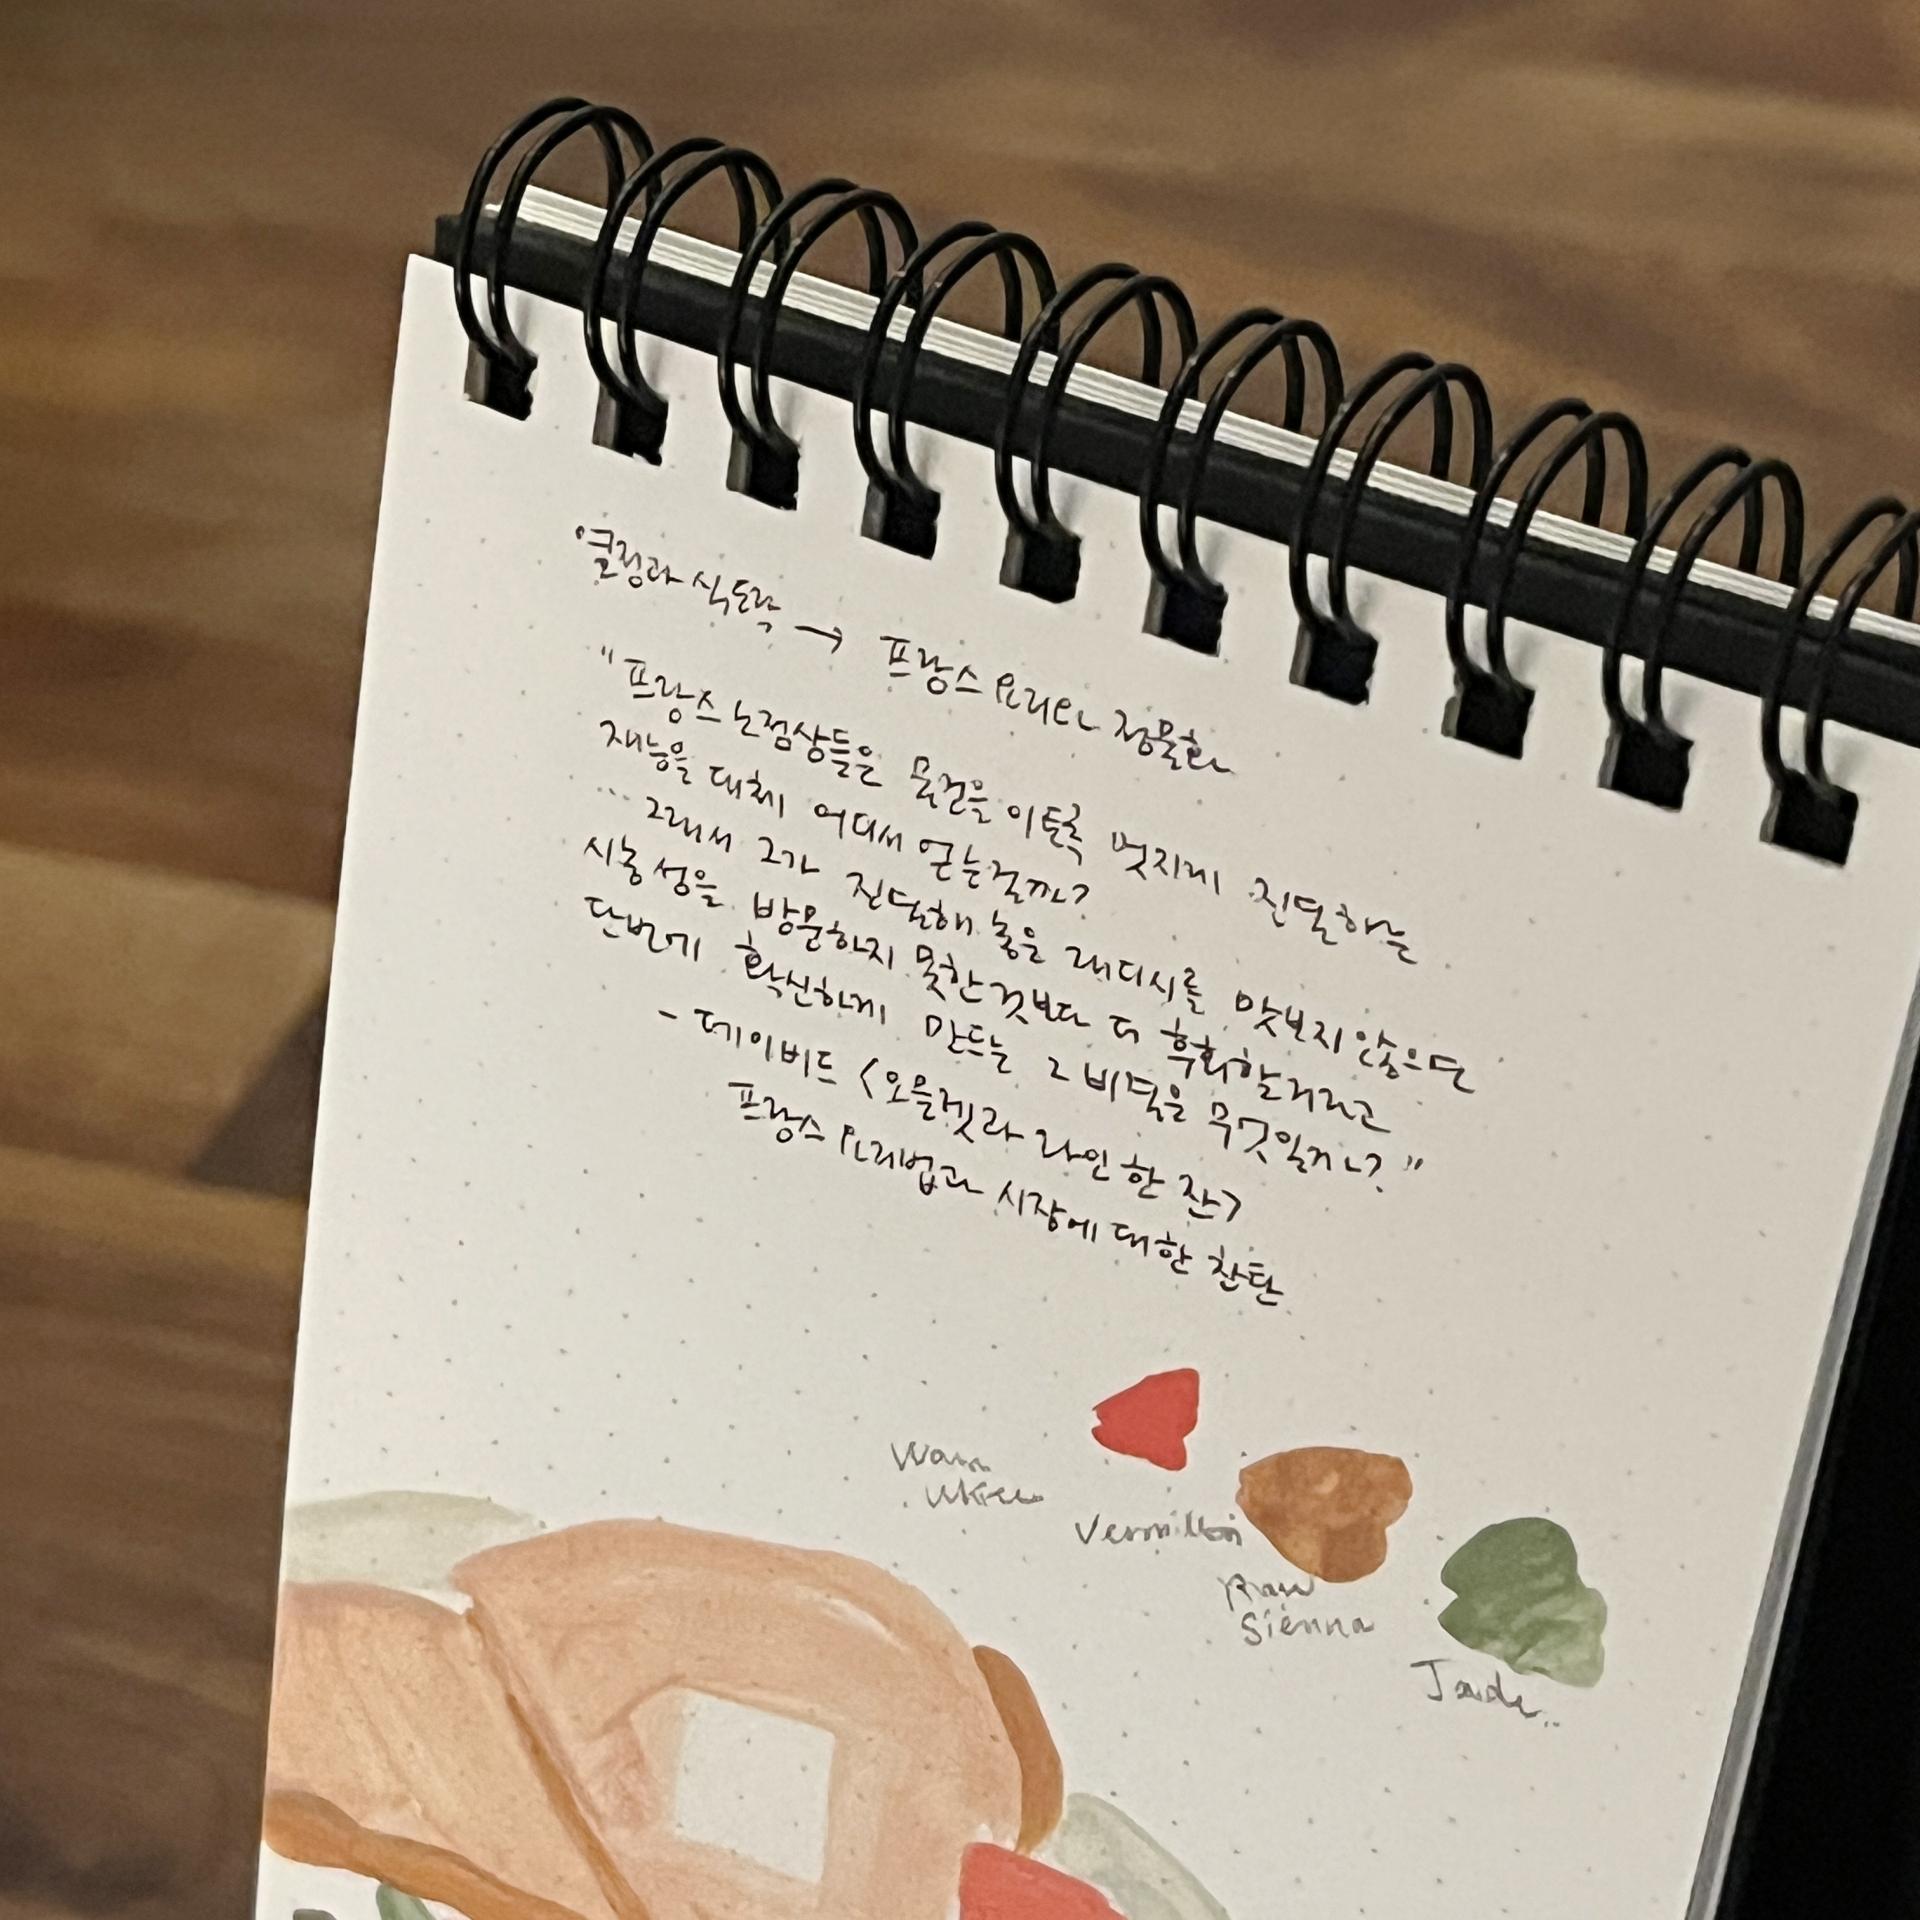 ·열정과 식도락 → 프랑스 요리와 정물화
"프랑스 노점상들은 물건을 이토록 멋지게 진열하는
재능을 대체 어디서 얻는걸까?
… 그래서 그가 진열해 놓은 래디시를 맛보지 않으면
시농성을 방문하지 못한것보다 더 후회할거라고
단번에 확신하게 만드는 그 비덕은 무엇일까?"
- 데이비드 <오믈렛과 와인 한 잔>
프랑스 요리법과 시장에 대한 찬탄
Warm
White
Vermillion
Raw
Sienna
Jade..